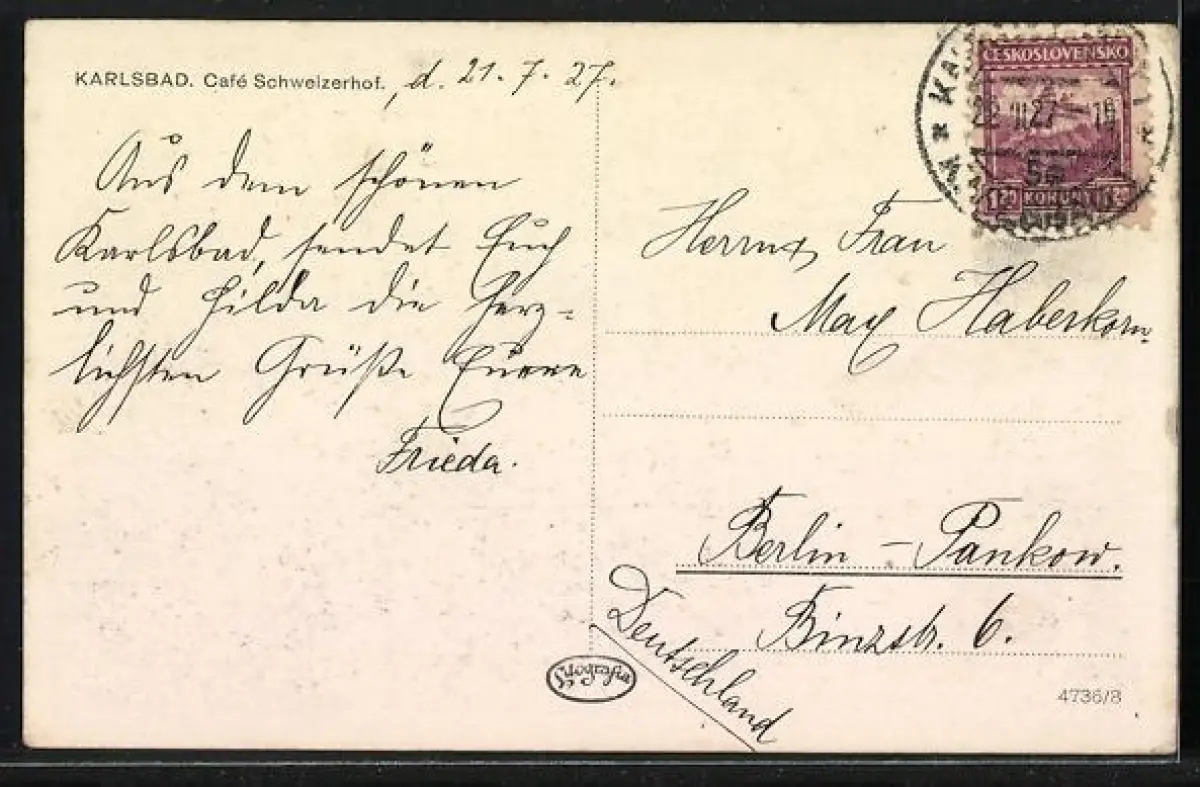 KARLSBAD. Café Schweizerhof. , d. 21. 7. 27.
Aus dem schönen
Karlsbad, sendet Euch
und Hilda die herz-
lichsten Grüße Eure
Frieda.
ČESKOSLOVENSKO
22 VII 27 - 16
5c
1.20 KORUNY 1.20
Herrn u. Frau
Max Haberkorn
Berlin - Pankow.
Binzstr. 6.
Deutschland
Litografia
4736/8